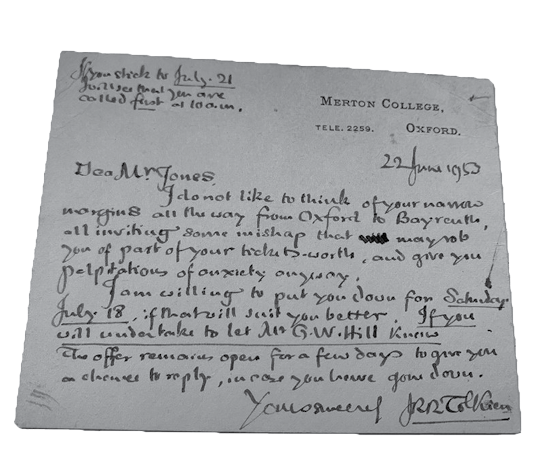 If you stick to July. 21
I will see that you are
called first at 10 a.m.
MERTON COLLEGE,
TELE. 2259. OXFORD.
22 June 1953
Dear Mr Jones
I do not like to think of your narrow
margins all the way from Oxford to Bayreuth,
all inviting some mishap that may rob
you of part of your tickets-worth, and give you
palpitations of anxiety anyway.
I am willing to put you down for Saturday.
July. 18, if that will suit you better. If you
will undertake to let Mr G. W. Hill know
The offer remains open for a few days to give you
a chance to reply, in case you have gone down.
Yours sincerely JRR Tolkien